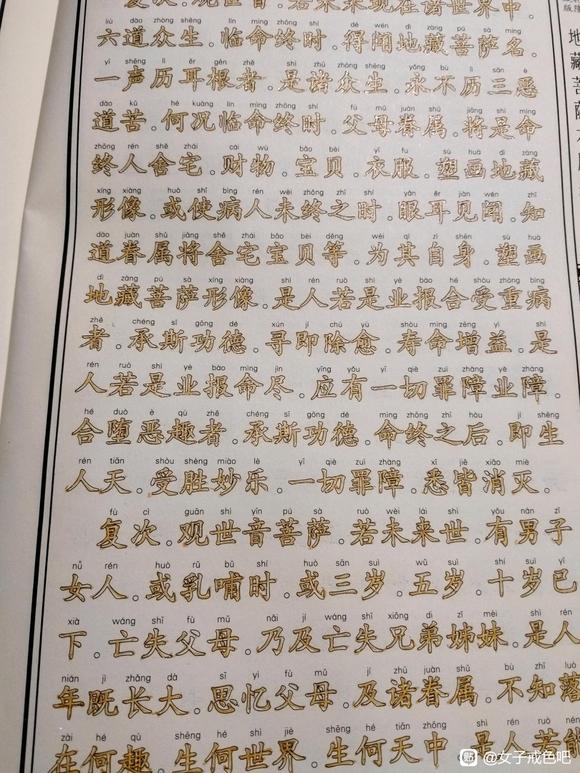 复次。观世音。若未来现在诸世界中。
liù dào zhòng shēng lín mìng zhōng shí dé wén dì zàng pú sà míng
六道众生。临命终时。得闻地藏菩萨名。
yì shēng lì ěr gēn zhě shì zhū zhòng shēng yǒng bú lì sān è
一声历耳根者。是诸众生。永不历三恶
dào kǔ hé kuàng lín mìng zhōng shí fù mǔ juàn shǔ jiāng shì mìng
道苦。何况临命终时。父母眷属。将是命
zhōng rén shě zhái cái wù bǎo bèi yī fú sù huà dì zàng
终人舍宅。财物。宝贝。衣服。塑画地藏
xíng xiàng huò shǐ bìng rén wèi zhōng zhī shí yǎn ěr jiàn wén zhī
形像。或使病人未终之时。眼耳见闻。知
dào juàn shǔ jiāng shě zhái bǎo bèi děng wèi qí zì shēn sù huà
道眷属将舍宅宝贝等。为其自身。塑画
dì zàng pú sà xíng xiàng shì rén ruò shì yè bào hé shòu zhòng bìng
地藏菩萨形像。是人若是业报合受重病
zhě chéng sī gōng dé xún jí chú yù shòu mìng zēng yì shì
者。承斯功德。寻即除愈。寿命增益。是
rén ruò shì yè bào mìng jìn yīng yǒu yí qiè zuì zhàng yè zhàng
人若是业报命尽。应有一切罪障业障。
hé duò è qù zhě chéng sī gōng dé mìng zhōng zhī hòu jí shēng
合堕恶趣者。承斯功德。命终之后。即生
rén tiān shòu shèng miào lè yí qiè zuì zhàng xī jiē xiāo miè
人天。受胜妙乐。一切罪障。悉皆消灭。
fù cì guān shì yīn pú sà ruò wèi lái shì yǒu nán zǐ
复次。观世音菩萨。若未来世。有男子
nǚ rén huò rǔ bǔ shí huò sān suì wǔ suì shí suì yǐ
女人。或乳哺时。或三岁。五岁。十岁已
xià wáng shī fù mǔ nǎi jí wáng shī xiōng dì zǐ mèi shì rén
下。亡失父母。乃及亡失兄弟姊妹。是人
nián jì zhǎng dà sī yì fù mǔ jí zhū juàn shǔ bù zhī luò
年既长大。思忆父母。及诸眷属。不知落
zài hé qù shēng hé shì jiè shēng hé tiān zhōng shì rén ruò néng
在何趣。生何世界。生何天中。是人若能
地藏菩萨
@女子戒色吧